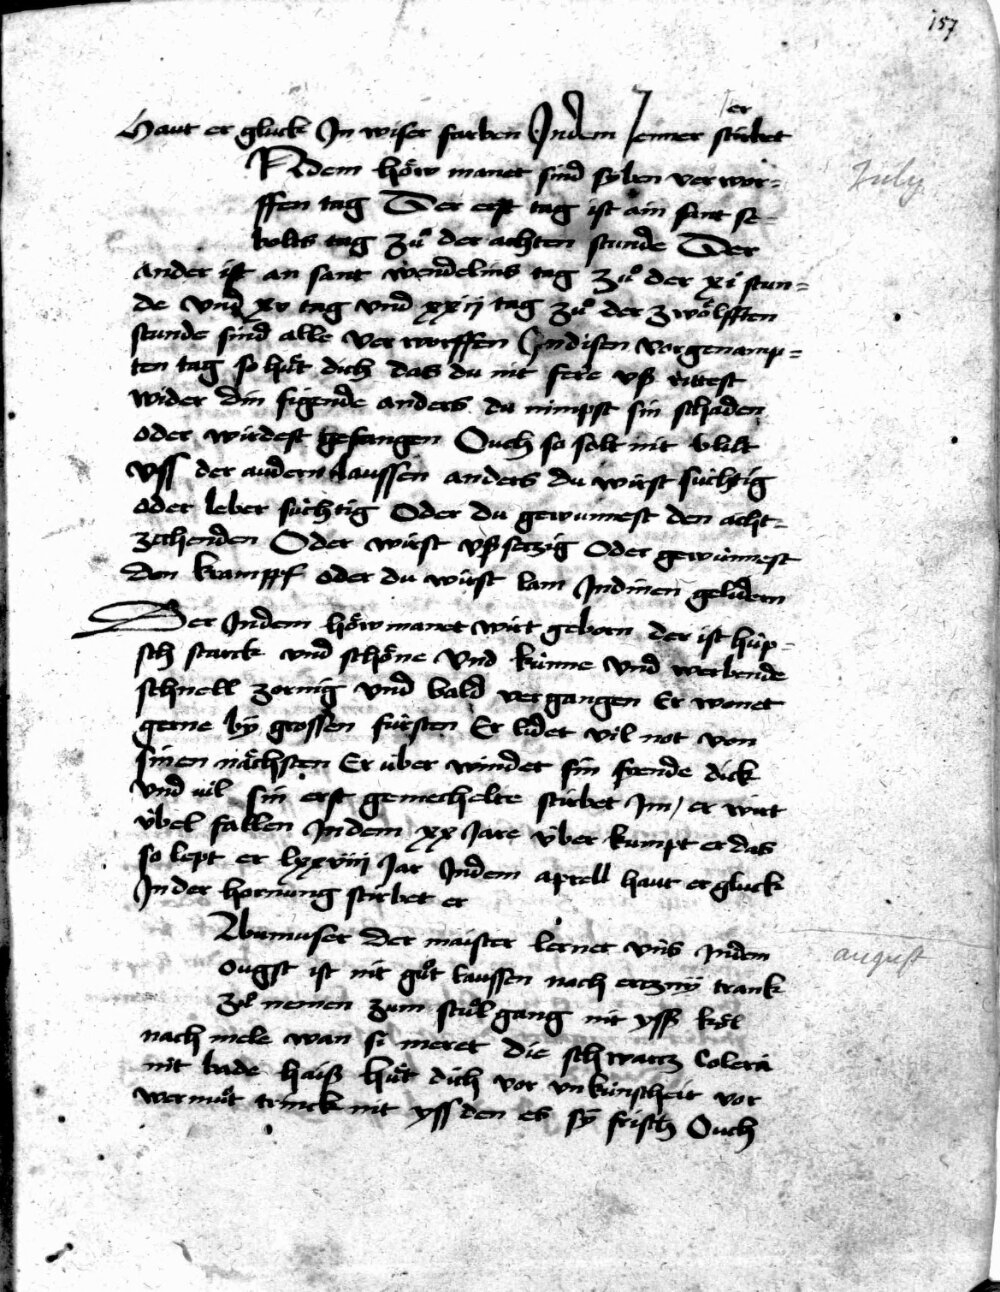 157
er
Haut er gluck In wiser farben Indem Jenner stirbet
In dem höw manet sind syben verwor-
July
ffen tag Der erst tag ist ain sant se-
bolts tag zů der achten stunde Der
ander ist an sant wendelins tag zů der xi stun-
de vnd xv tag vnd xxij tag zů der zwölfften
stunde sind alle verworffen Indisen vorgenamp-
ten tag so hůt dich das du nit fere vß rittest
wider din figende anders du nimpst sin schaden
oder wirdest gefangen Ouch so solt nit blůt
vss der audern laussen anders du wirst süchtig
oder leber süchtig Oder du gewunnest den acht-
zechenden Oder wirst vßsetzig Oder gewünnest
den krampff oder du wirst lam Indinen gelidern
Der Indem höwmanet wirt geborn der ist hüp-
sch starck vnd schöne vnd künne vnd werbende
schnell zornig vnd bald vergangen Er wonet
gerne by grossen fürsten Er lidet vil not von
sinen nächsten Er über windet sin frende dick
vnd vil sin erst gemechelte stirbet Im / er wirt
übel fallen Indem xx Jare über kumpt er das
so lept er lxxviij Jar Indem aprell haut er gluck
In der hornung stirbet er
Abumuser der maister lernet vns Indem
august
ougst ist nit gůt laussen nach erczny trank
zů nemen zum stůlgang nit yss köl
nach mele wan si meret die schwartz Colera
nit bade haiß hůt dich vor vnkünscheit vor
wermůt trinck nit yss den es sy frisch Ouch